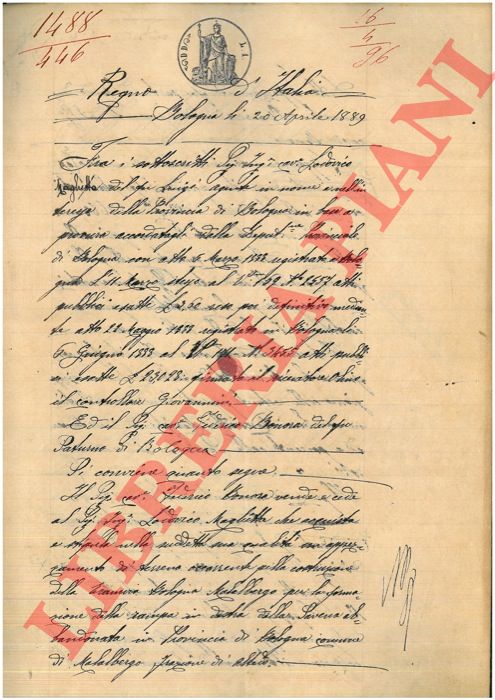 1488
446
16
4
96
Regno d'Italia
Bologna li 20 Aprile 1889
Fra i sottoscritti Sig. Ing. cav. Lodovico
Maglietta del fu Luigi agente in nome e nell'in
teresse della Provincia di Bologna in base a
procura accordatagli dalla Deput. Provinciale
di Bologna con atto 6 Marzo 1888 registrato a Bolo
gna l' 11 Marzo stesso al N. 2457 atti
pubblici esatte L 3.60 reso poi definitivo median
te atto 22 Maggio 1888 registrato in Bologna li
6 Giugno 1888 al atti pubbli
ci esatte L il ricevitore
il controllore Giovannini
Ed il Sig. cav. Federico Bonora del fu
Paturno di Bologna
Si conviene quanto segue
Il Sig. cav. Federico Bonora vende e cede
al Sig. Ing. Lodovico Maglietta che acquista
e stipula nella suddetta sua qualità un appez
zamento di terreno occorrente nella costruzione
della Tramvia Bologna Malalbergo per la forma
zione della rampa in destra della Savena ab
bandonata in Provincia di Bologna comune
di Malalbergo frazione di Altedo.
LIBRERIA PIANI